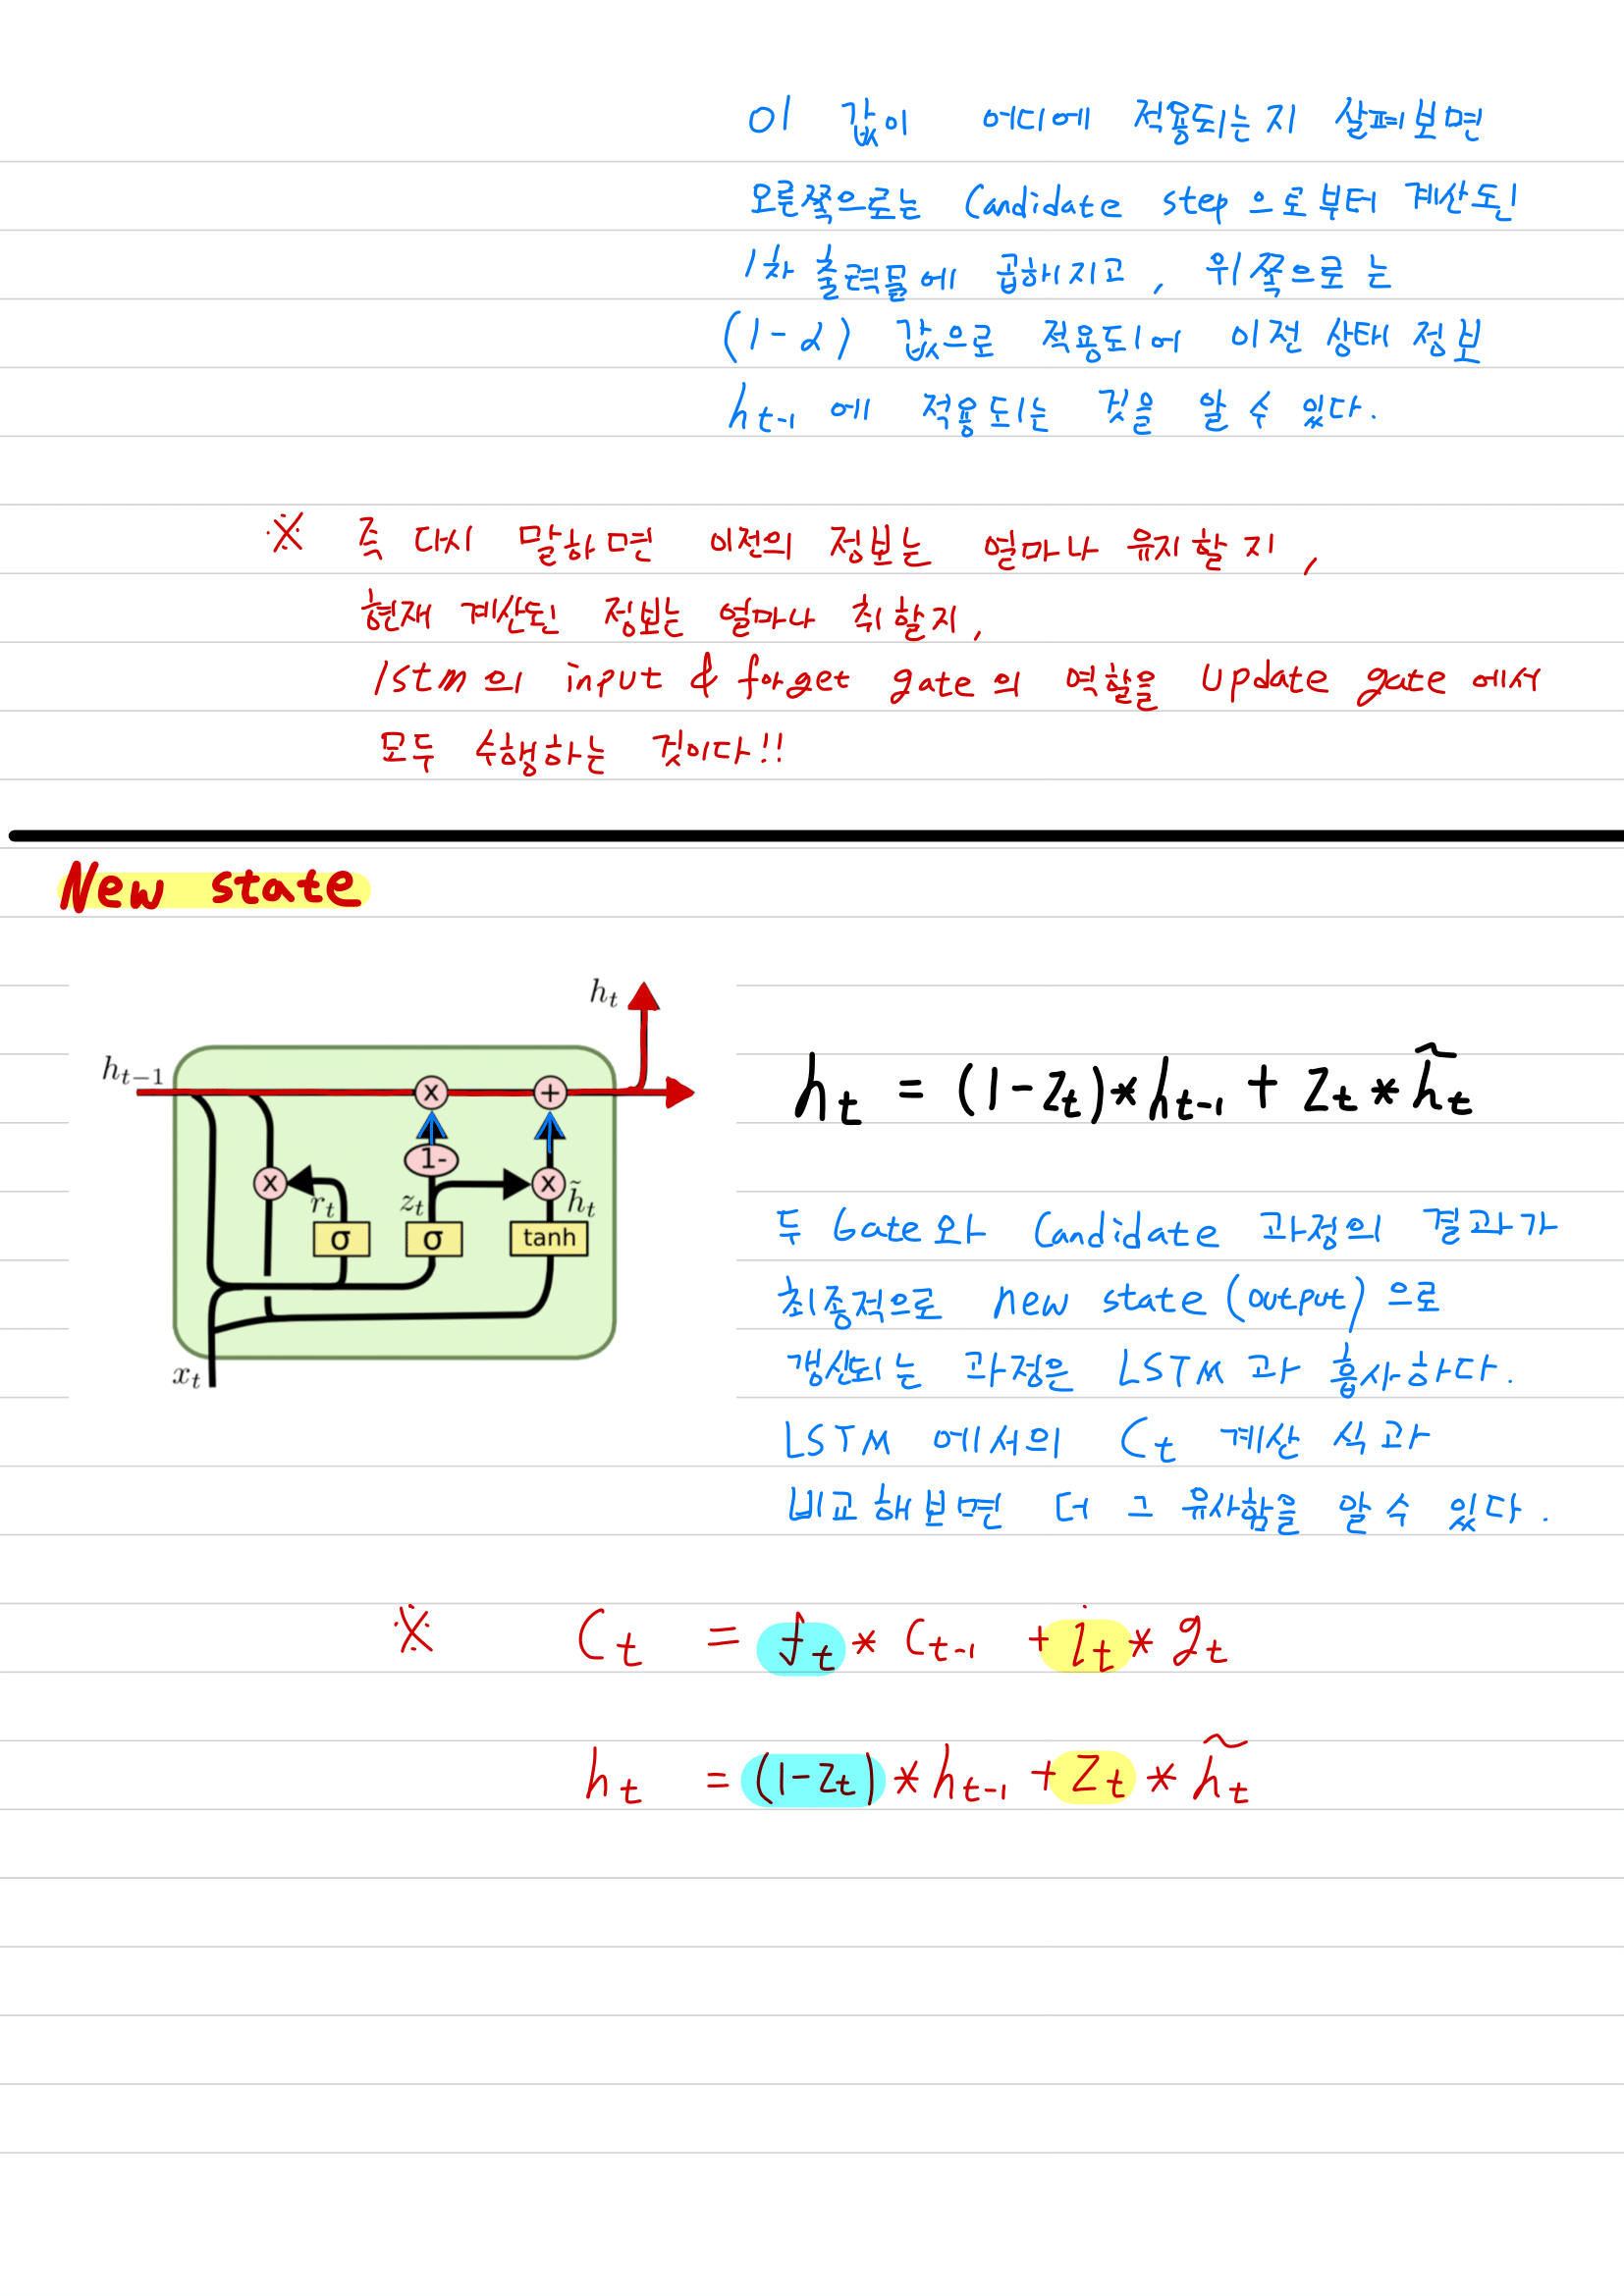 이 값이 어디에 적용되는지 살펴보면
오른쪽으로는 Candidate step 으로부터 계산된
1차 출력물에 곱해지고, 위쪽으로는
(1-α) 값으로 적용되어 이전 상태 정보
h_{t-1} 에 적용되는 것을 알 수 있다.
※ 즉 다시 말하면 이전의 정보는 얼마나 유지할지,
현재 계산된 정보는 얼마나 취할지,
lstm의 input & forget gate의 역할을 update gate에서
모두 수행하는 것이다!!
New state
h_t
h_{t-1}
x +
1-
x x
r_t z_t h̃_t
σ σ tanh
x_t
h_t = (1-z_t)*h_{t-1} + z_t * h̃_t
두 Gate와 Candidate 과정의 결과가
최종적으로 new state (output)으로
갱신되는 과정은 LSTM과 흡사하다.
LSTM에서의 C_t 계산 식과
비교해보면 더 그 유사함을 알 수 있다.
※ C_t = f_t * C_{t-1} + i_t * g_t
h_t = (1-z_t) * h_{t-1} + z_t * h̃_t